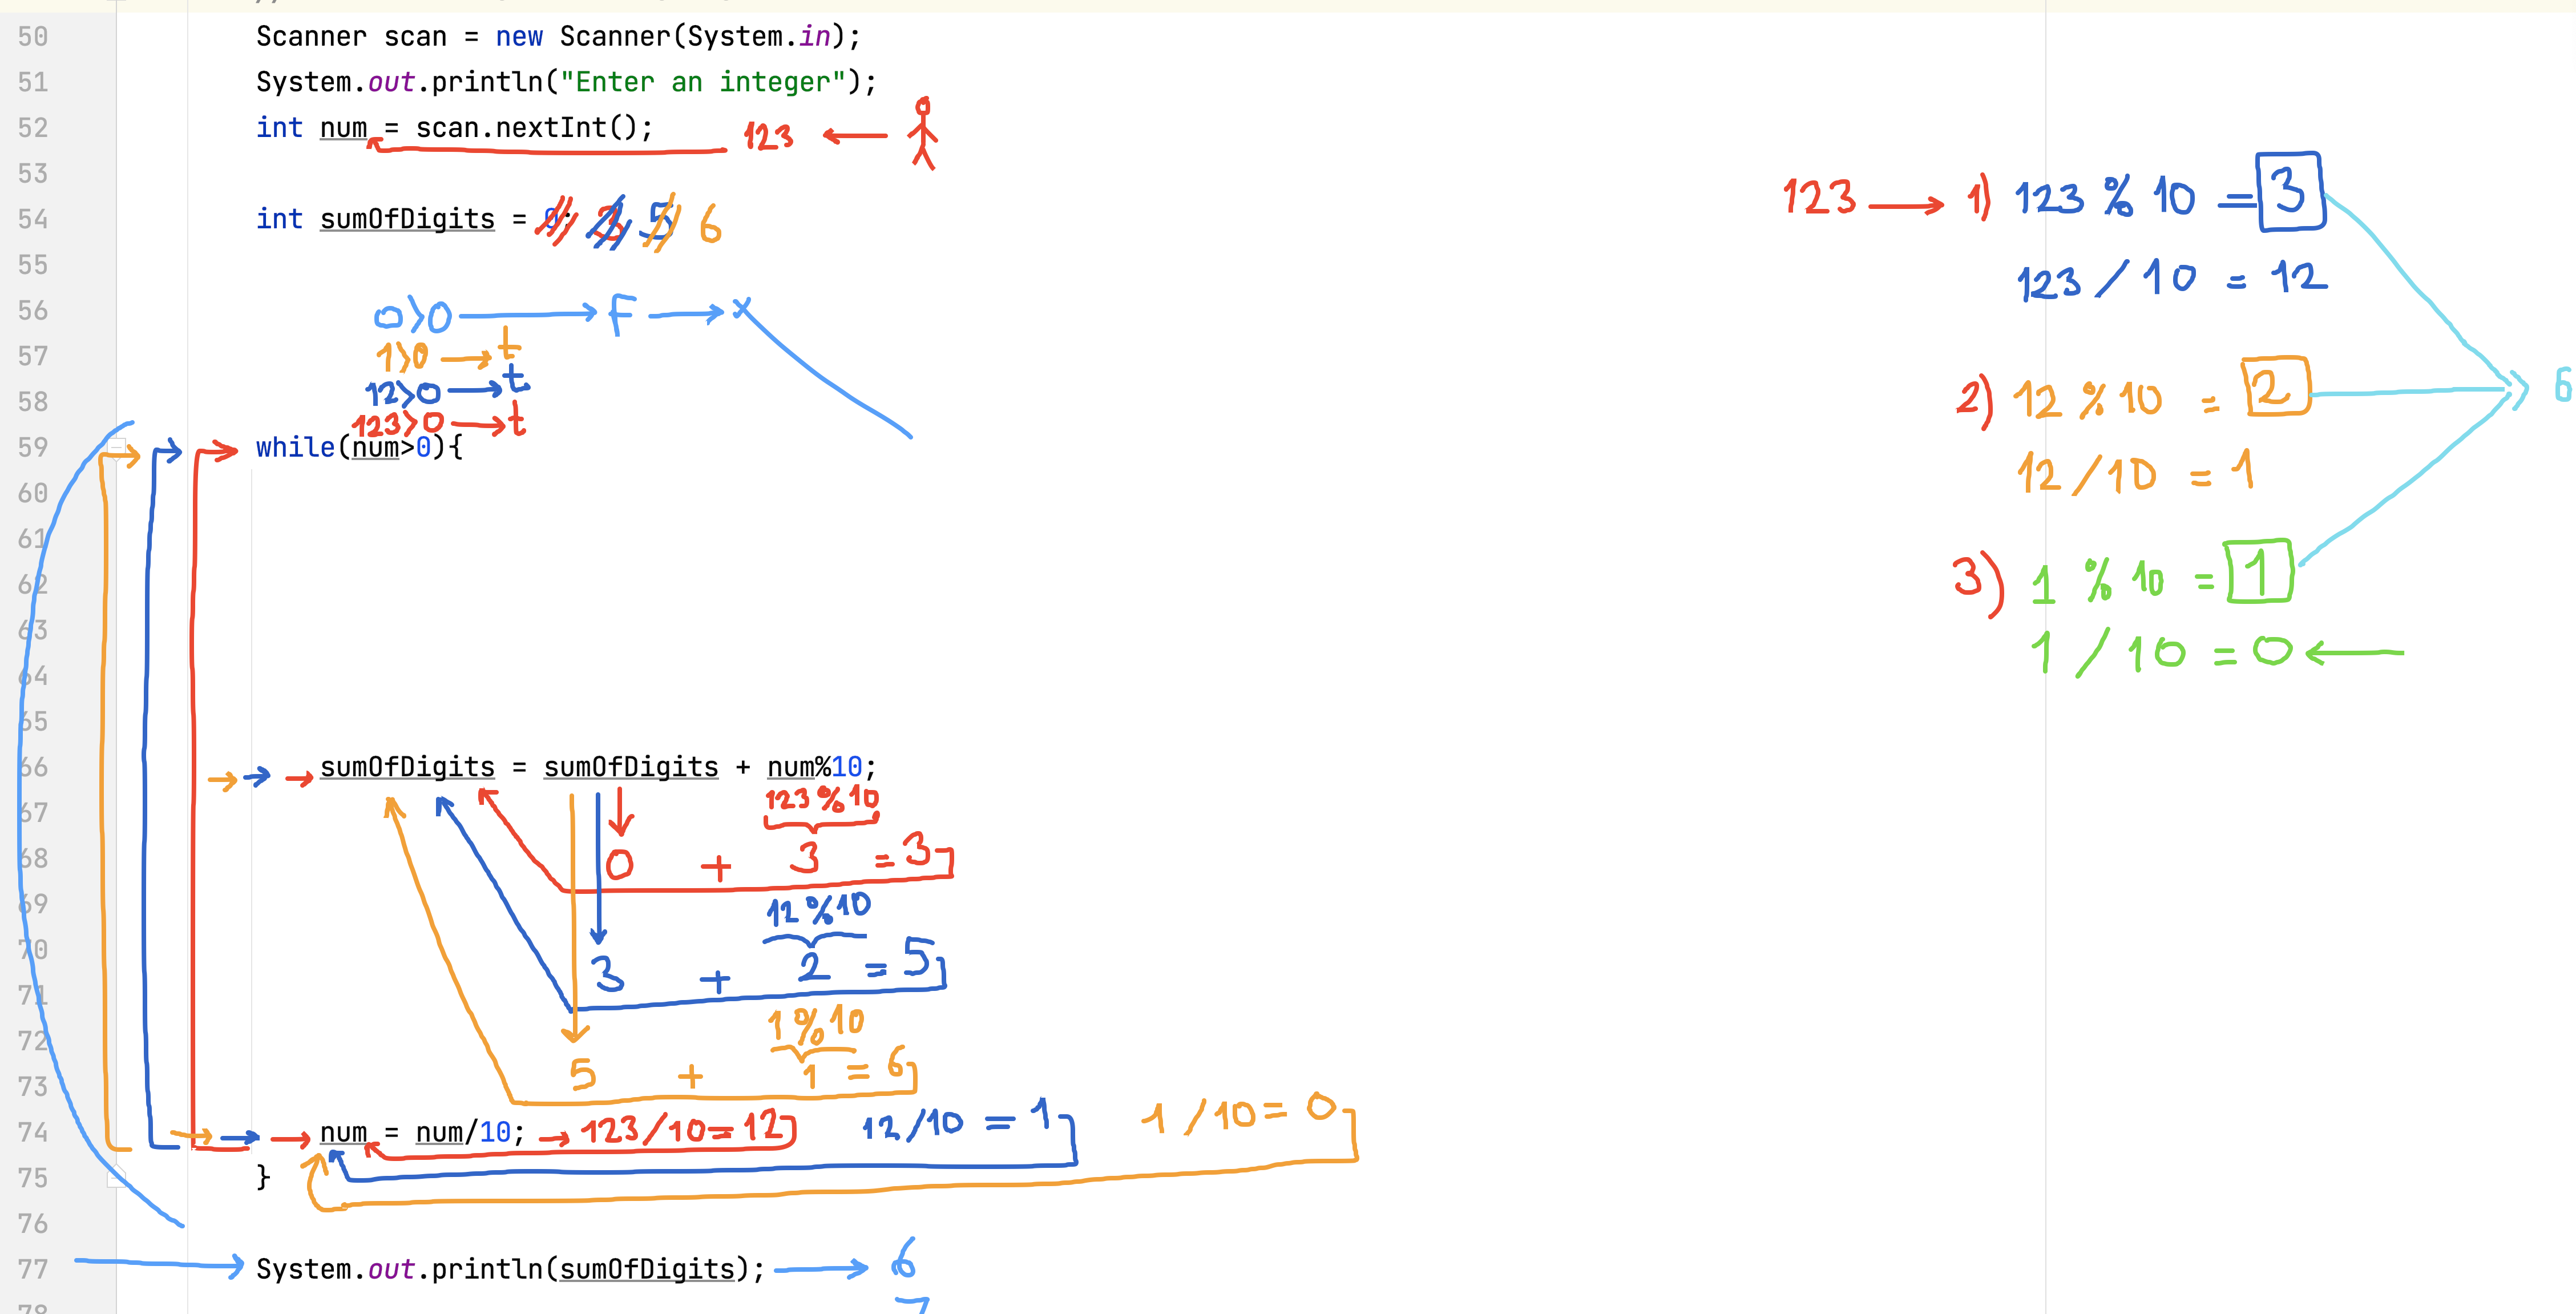 50 Scanner scan = new Scanner(System.in);
51 System.out.println("Enter an integer");
52 int num = scan.nextInt(); 123
53
54 int sumOfDigits = 0; 3 5 6
55
56 0>0 → F → x
57 1>0 → t
58 12>0 → t
123>0 → t
59 while(num>0){
60
61
62
63
64
65
66 sumOfDigits = sumOfDigits + num%10;
67 123%10
68 0 + 3 = 3
69 12%10
70 3 + 2 = 5
71
72 1%10
73 5 + 1 = 6
74 num = num/10; → 123/10=12 12/10 = 1 1/10= 0
75 }
76
77 System.out.println(sumOfDigits); → 6
78
123 → 1) 123 % 10 = 3
123 / 10 = 12
2) 12 % 10 = 2
12 / 10 = 1
3) 1 % 10 = 1
1 / 10 = 0 ←
6